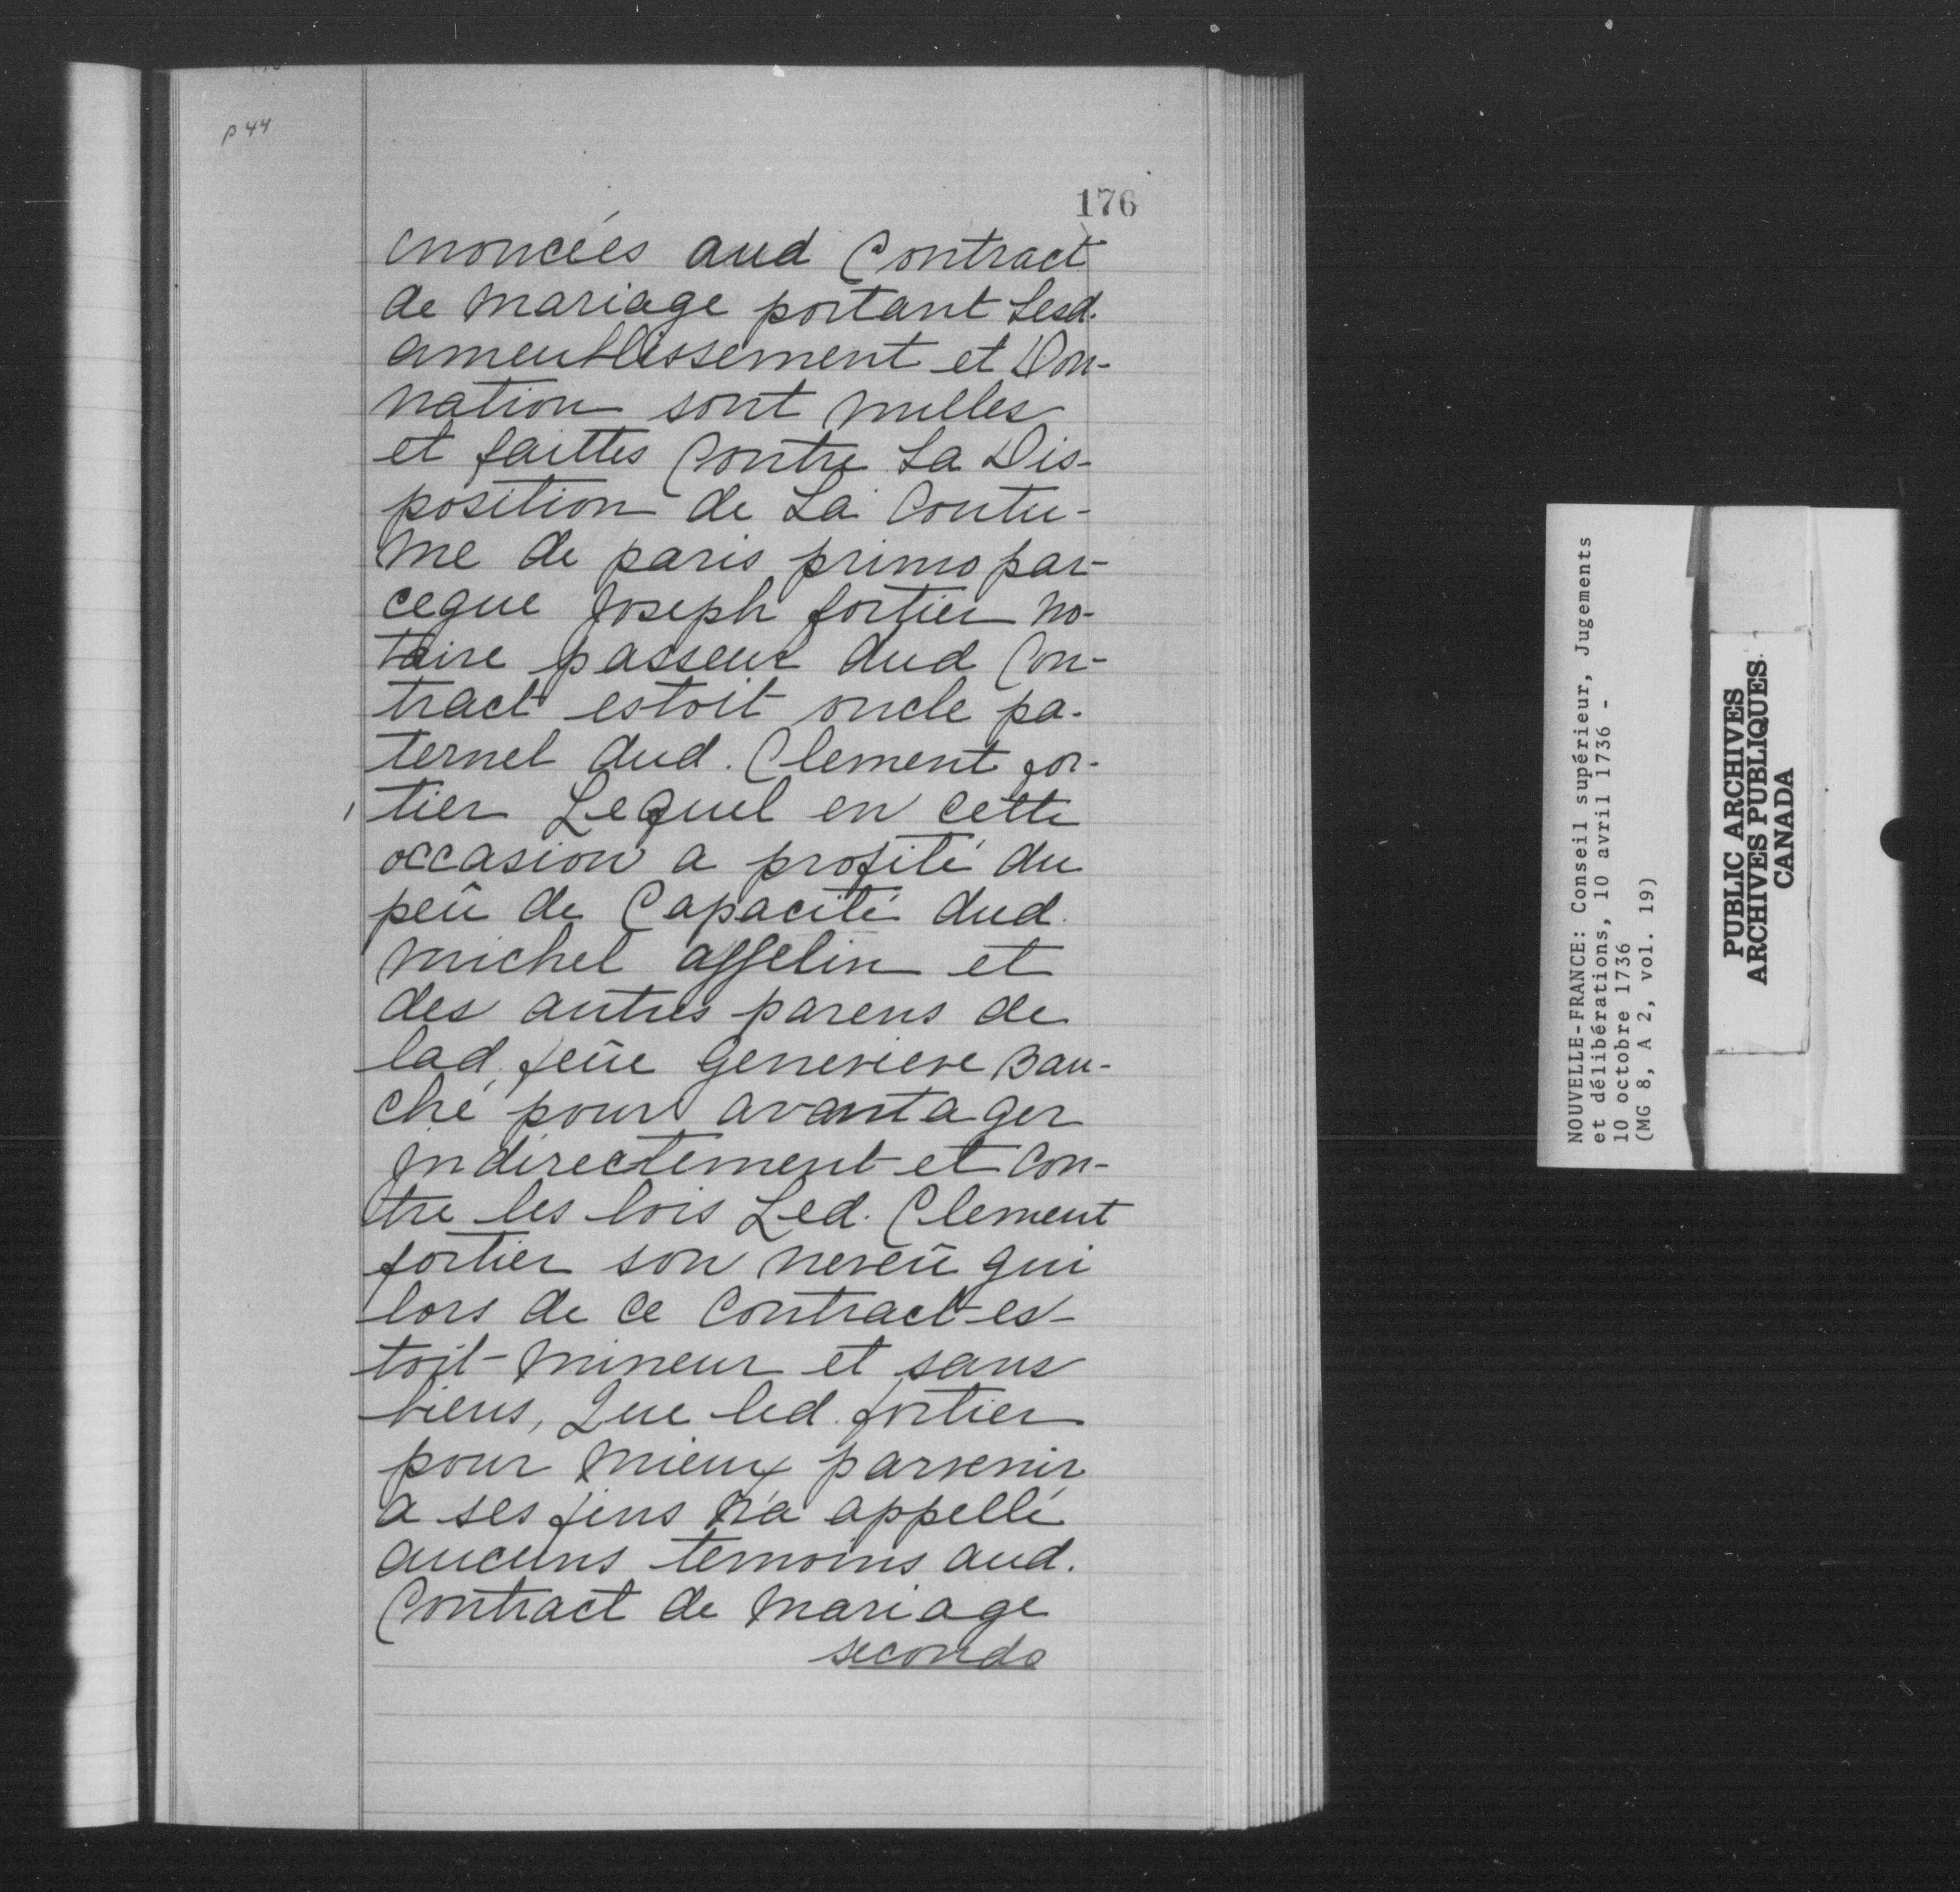 p 44
176
enoncées aud Contract
de mariage portant Lesd.
ameublissement et Don-
nation sont nulles
et faittes Contre La Dis-
position de La Coutu-
me de paris primo par-
ceque Joseph fortier no-
taire passeur dud Con-
tract estoit oncle pa-
ternel dud. Clement for-
tier Lequel en cette
occasion a profité du
peû de Capacité dud.
michel asselin et
des autres parens de
lad. feüe genevieve Bau-
ché pour avantager
Indirectement et con-
tre les lois Led. Clement
fortier son neveü qui
lors de ce contract es-
toit mineur et sans
biens, Que led. fortier
pour mieux parvenir
a ses fins n'a appellé
aucuns temoins aud.
Contract de mariage
secondo
NOUVELLE-FRANCE: Conseil supérieur, Jugements
et délibérations, 10 avril 1736 -
10 octobre 1736
(MG 8, A 2, vol. 19)
PUBLIC ARCHIVES
ARCHIVES PUBLIQUES
CANADA